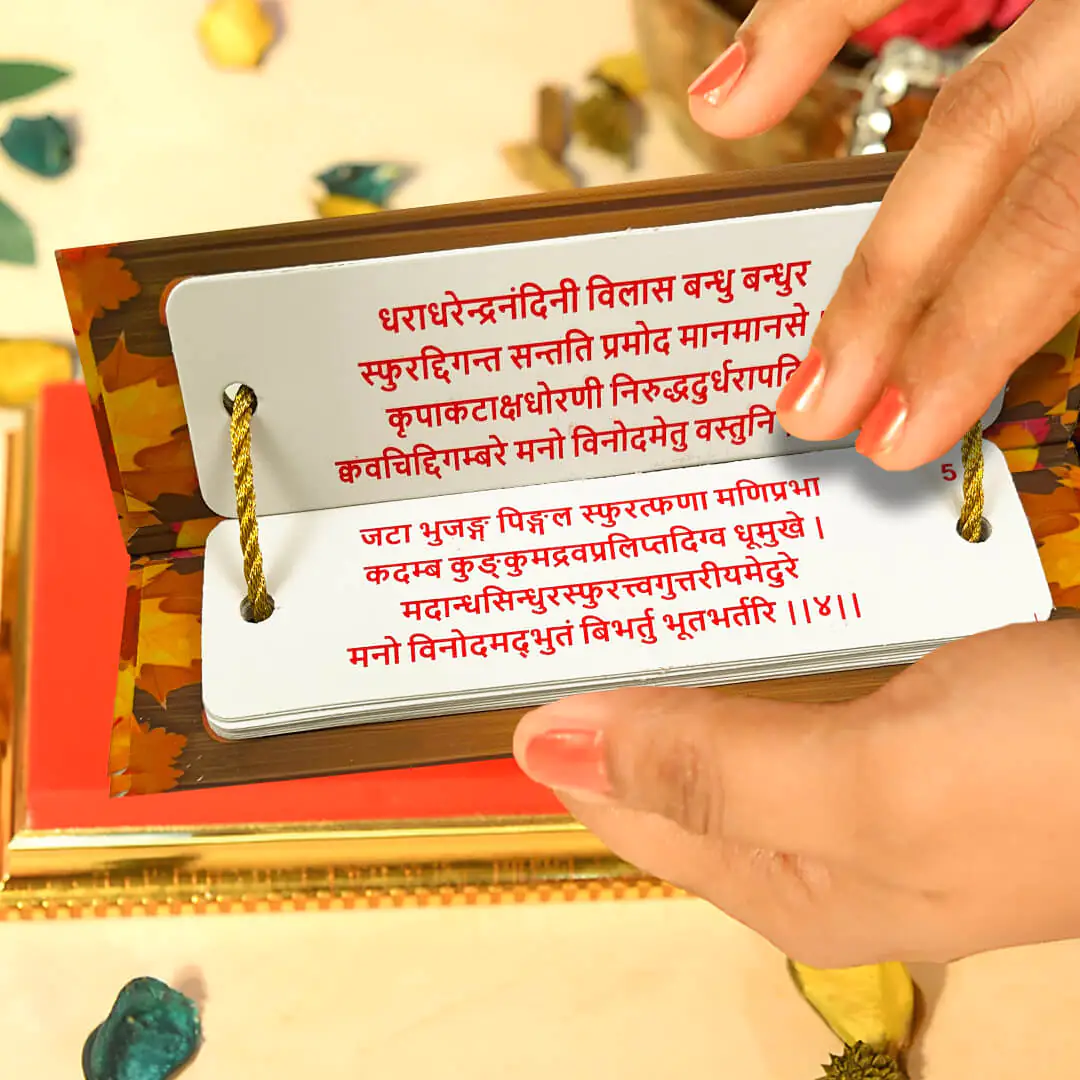 धराधरेन्द्रनंदिनी विलास बन्धु बन्धुर
स्फुरद्दिगन्त सन्तति प्रमोद मानमानसे
कृपाकटाक्षधोरणी निरुद्धदुर्धरापदि
क्ववचिद्दिगम्बरे मनो विनोदमेतु वस्तुनि
5
जटा भुजङ्ग पिङ्गल स्फुरत्फणा मणिप्रभा
कदम्ब कुङ्कुमद्रवप्रलिप्तदिग्व धूमुखे |
मदान्धसिन्धुरस्फुरत्त्वगुत्तरीयमेदुरे
मनो विनोदमद्भुतं बिभर्तु भूतभर्तरि ||४||